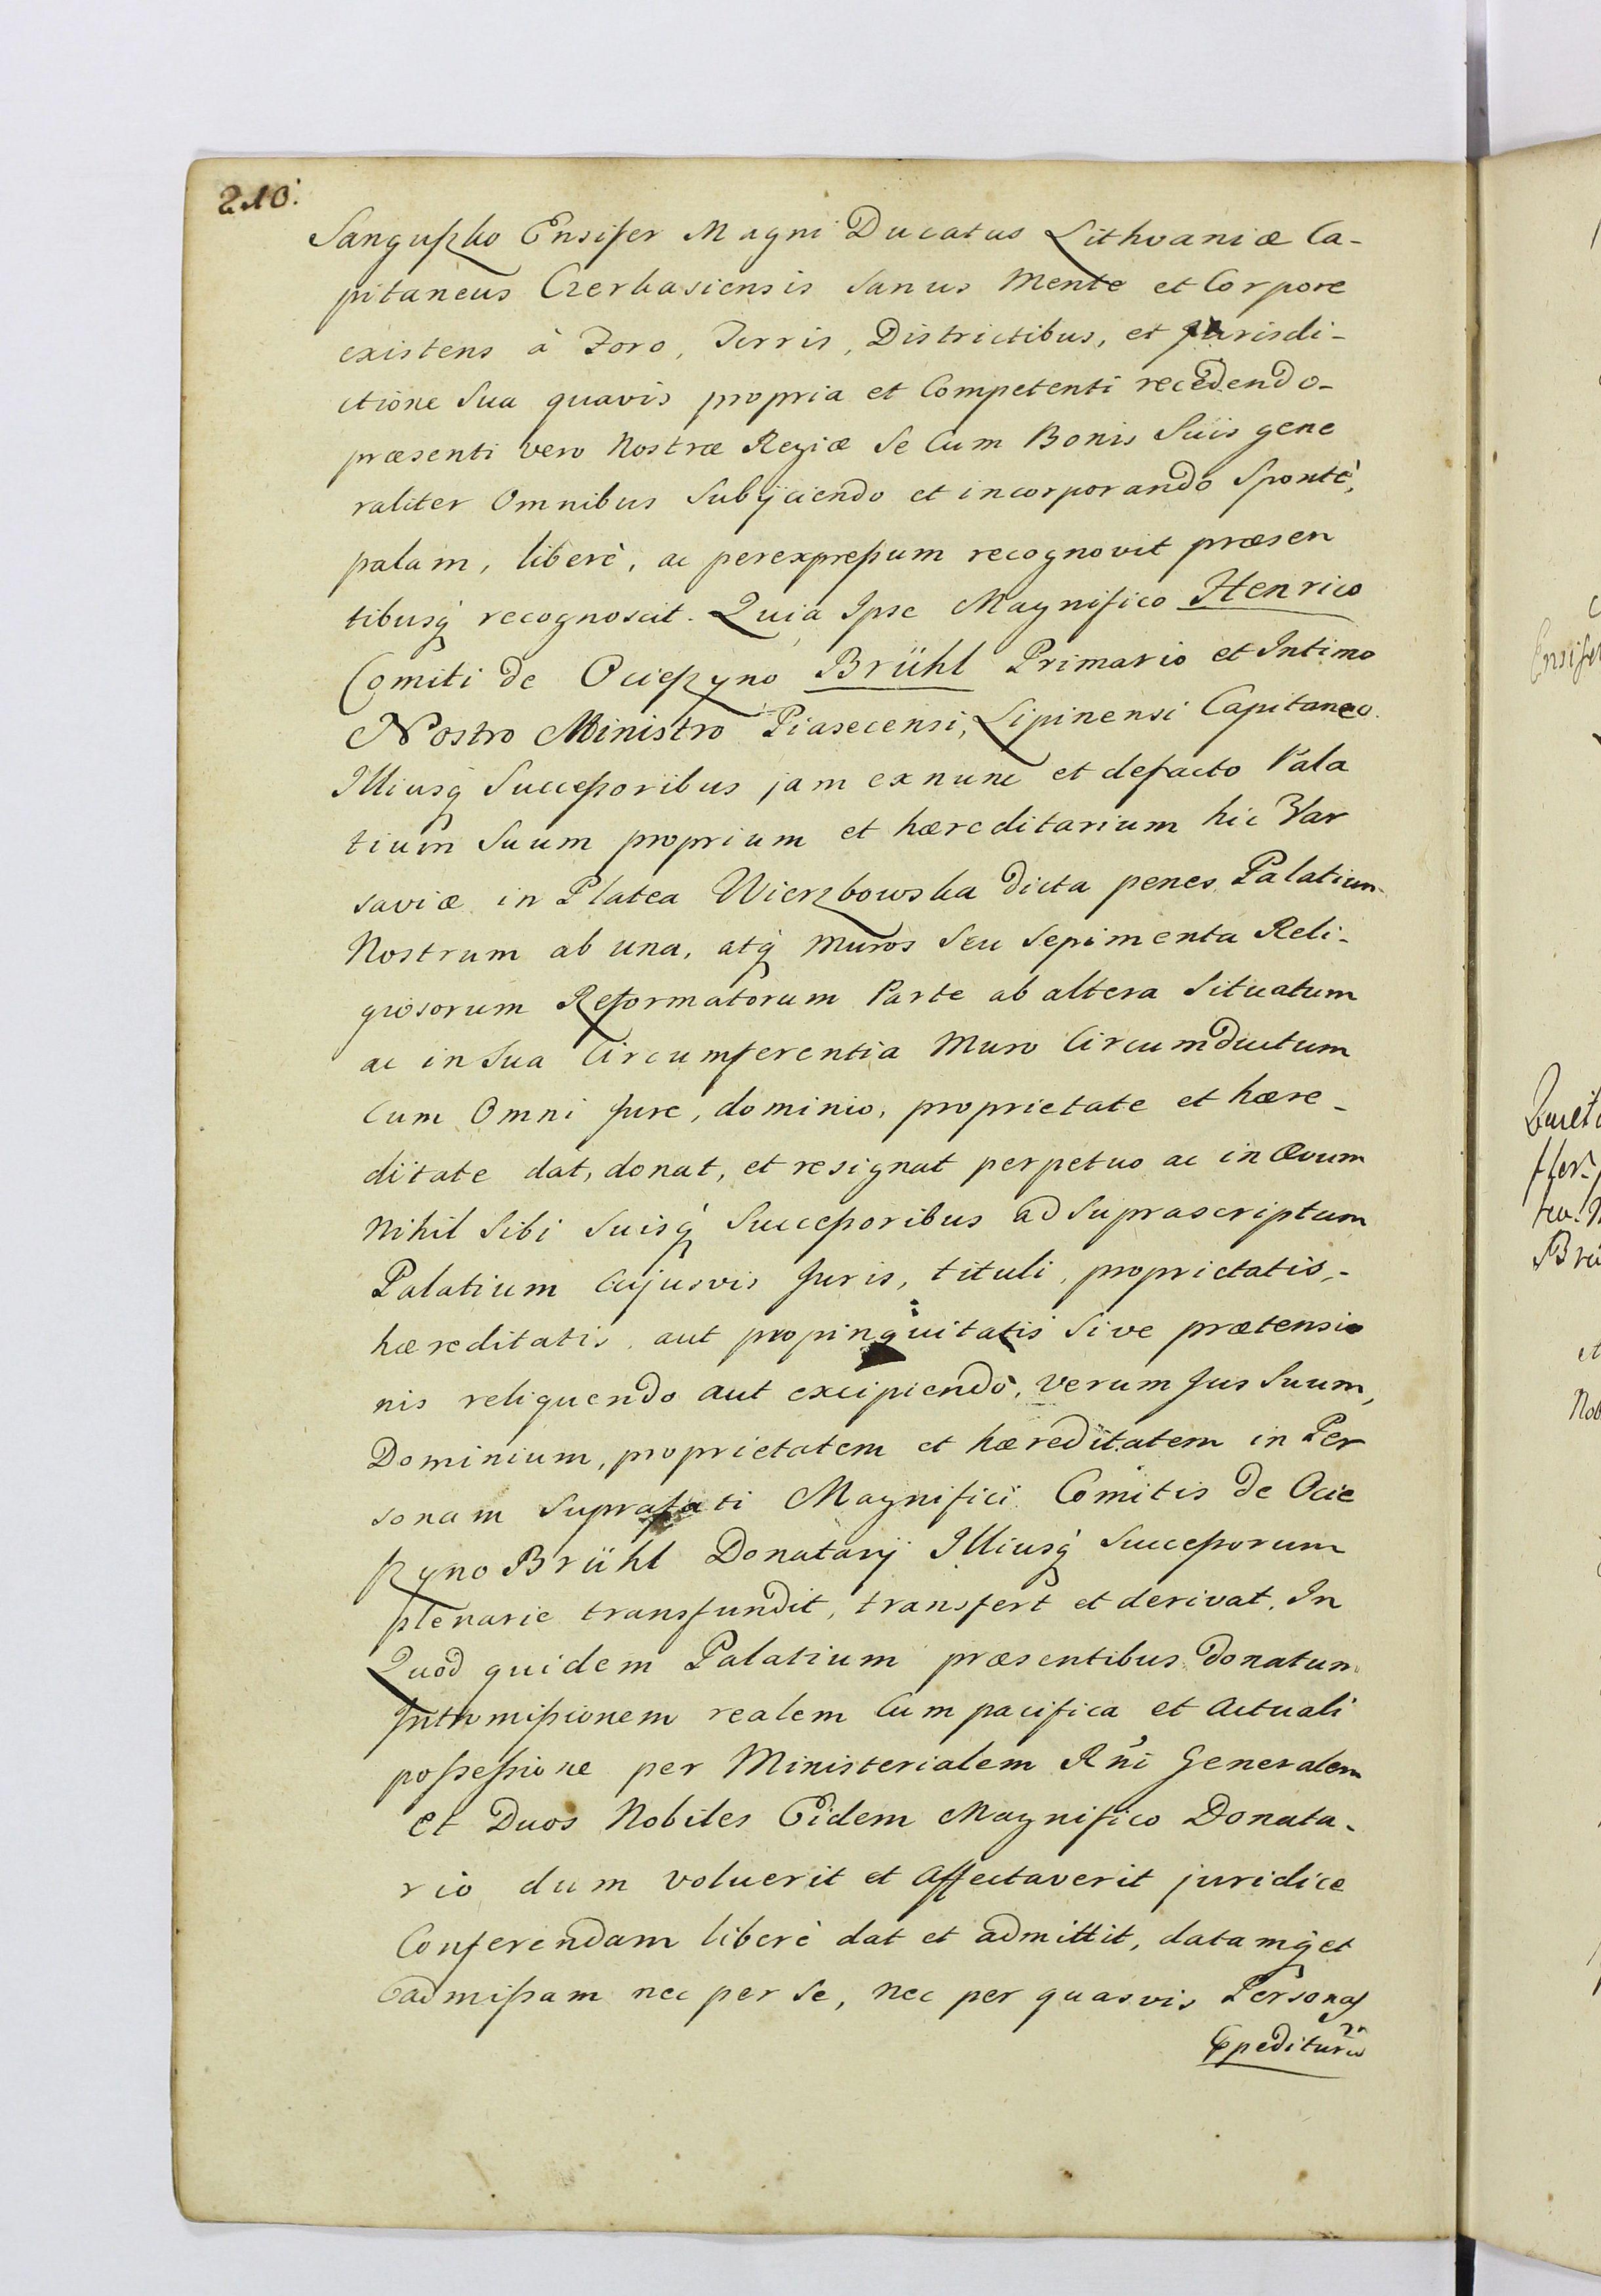 210.
Sanguszko Ensifer Magni Ducatus Lithvaniæ Ca-
pitaneus Czerkasiensis Sanus Mente et Corpore
existens à Foro, Terris, Districtibus, et Jurisdi-
ctione Sua quavis propria et Competenti recedendo-
præsenti vero Nostræ Regiæ Se Cum Bonis Suis gene
raliter Omnibus Subijciendo et incorporando Spontè,
palam, liberè, ac perexpreßum recognovit præsen
tibusq́ recognoscit. Quia Ipse Magnifico Henrico
Comiti de Ocieszyno Brühl Primario et Intimo
Nostro Ministro Piasecensi, Lipinensi Capitaneo
Illiusq́ Succeßoribus jam exnunc et defacto Pala
tium Suum proprium et hæreditarium hic Var
saviæ in Platea Wierzbowska dicta penes Palatium
Nostrum ab una, atq́ muros Seu Sepimenta Reli-
giosorum Reformatorum Parte ab altera Situatum
ac in Sua Circumferentia Muro Circumductum
Cum Omni Jure, dominio, proprietate et hære-
ditate dat, donat, et resignat perpetuo ac in Ævum
Nihil Sibi Suisq́ Succeßoribus ad Suprascriptum
Palatium Cujusvis Juris, tituli, proprietatis,-
hæreditatis, aut propinquitatis Sive prætensio
nis reliquendo aut excipiendo, verum Jus Suum,
Dominium, proprietatem et hæreditatem in Per
sonam Suprafati Magnifici Comitis de Ocie
szyno Brühl Donatarij Illiusq́ Succeßorum
plenarie transfundit, transfert et derivat. In
Quod quidem Palatium præsentibus donatum
Intromißionem realem Cum pacifica et Actuali
poßeßione per Ministerialem Rńi Generalem
et Duos Nobiles Eidem Magnifico Donata-
rio dum voluerit et Affectaverit juridice
Conferendam liberè dat et admittit, datamq́ et
admißam nec per Se, nec per quasvis Personas
Ensifer
Bru
et
Nob